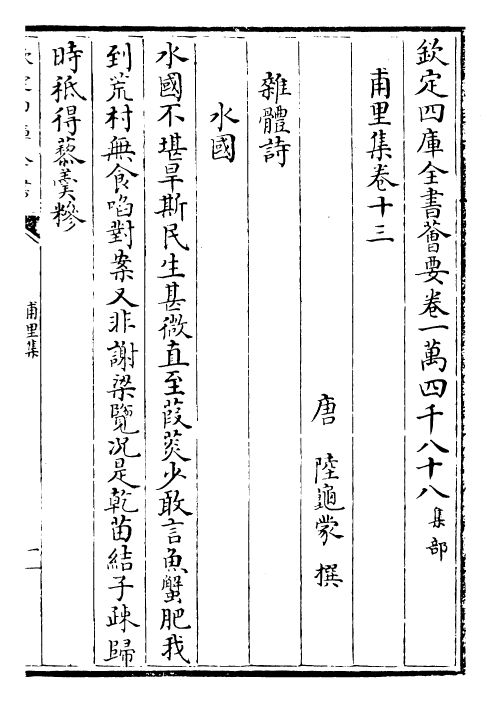 欽定四庫全書薈要卷一萬四千八十八集部
甫里集卷十三
唐 陸龜蒙 撰
雜體詩
水國
水國不堪旱斯民生甚微直至葭菼少敢言魚蟹肥我
到荒村無食啗對案又非謝梁覽况是乾苗結子疎歸
時秖得藜羮糝
甫里集
一